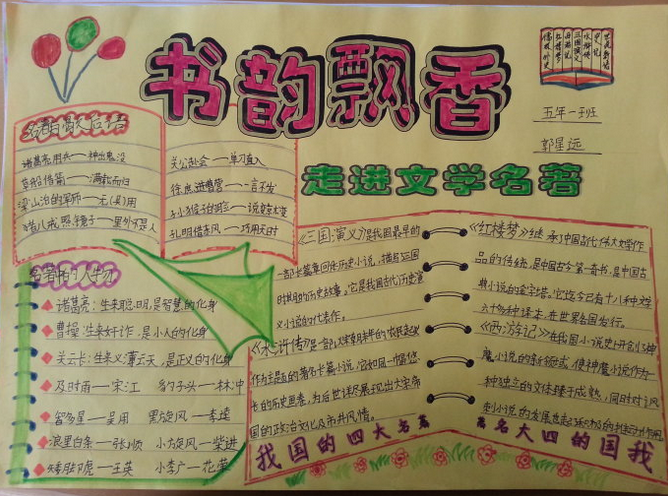 书韵飘香
走进文学名著
五年一班
郭星远
名著与歇后语
诸葛亮用兵——神出鬼没
草船借箭——满载而归
梁山泊的军师——无(吴)用
猪八戒照镜子——里外不是人
关公赴会——单刀直入
徐庶进曹营——一言不发
孔明借东风——巧用天时
名著中的人物
诸葛亮:生来聪明,是智慧的化身
曹操:生来奸诈,是小人的化身
关云长:生来义薄云天,是正义的化身
及时雨——宋江 豹子头——林冲
智多星——吴用 黑旋风——李逵
浪里白条——张顺 小旋风——柴进
矮脚虎——王英 小李广——花荣
《三国演义》是我国最早的
一部长篇章回体历史小说,描写三国
时期的历史故事。它是我国古代历史演
义小说的代表作。
《水浒传》是一部以
作为主题的著名长篇小说,它如同一幅悠
长的历史画卷,为后世详尽展现出大宋帝
国的政治文化及市井风情。
我国的四大名著
《红楼梦》继承了中国古代伟大文学作
品的传统,是中国古今第一奇书,是中国古
典小说的金字塔。它迄今已有十八种文字
六十多种译本,在世界各国发行。
《西游记》在我国小说史上开创了神
魔小说的新领域,使神魔小说作为一
种独立的文体臻于成熟,同时对讽
刺小说的发展也起
著名大四的国我